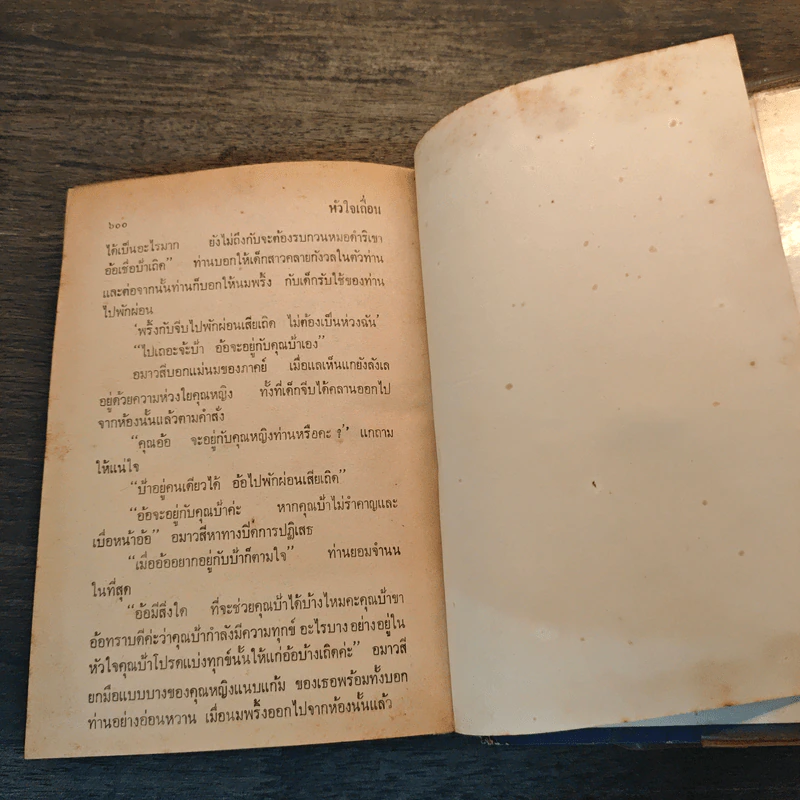 หัวใจเถื่อน
๖๐๐
ได้เป็นอะไรมาก ยังไม่ถึงกับจะต้องรบกวนหมอดำริเขา
อ้อเชื่อป้าเถิด” ท่านบอกให้เด็กสาวคลายกังวลในตัวท่าน
และต่อจากนั้นท่านก็บอกให้นมพริ้ง กับเด็กรับใช้ของท่าน
ไปพักผ่อน
‘พริ้งกับจีบไปพักผ่อนเสียเถิด ไม่ต้องเป็นห่วงฉัน’
“ไปเถอะจ้ะป้า อ้อจะอยู่กับคุณป้าเอง”
อมาวสีบอกแม่นมของภาคย์ เมื่อแลเห็นแกยังลังเล
อยู่ด้วยความห่วงใยคุณหญิง ทั้งที่เด็กจีบได้คลานออกไป
จากห้องนั้นแล้วตามคำสั่ง
“คุณอ้อ จะอยู่กับคุณหญิงท่านหรือคะ ?” แกถาม
ให้แน่ใจ
“ป้าอยู่คนเดียวได้ อ้อไปพักผ่อนเสียเถิด”
“อ้อจะอยู่กับคุณป้าค่ะ หากคุณป้าไม่รำคาญและ
เบื่อหน้าอ้อ” อมาวสีหาทางปิดการปฏิเสธ
“เมื่ออ้ออยากอยู่กับป้าก็ตามใจ” ท่านยอมจำนน
ในที่สุด
“อ้อมีสิ่งใด ที่จะช่วยคุณป้าได้บ้างไหมคะคุณป้าขา
อ้อทราบดีค่ะว่าคุณป้ากำลังมีความทุกข์ อะไรบางอย่างอยู่ใน
หัวใจคุณป้าโปรดแบ่งทุกข์นั้นให้แก่อ้อบ้างเถิดค่ะ” อมาวสี
ยกมือแบบบางของคุณหญิงแนบแก้ม ของเธอพร้อมทั้งบอก
ท่านอย่างอ่อนหวาน เมื่อนมพริ้งออกไปจากห้องนั้นแล้ว